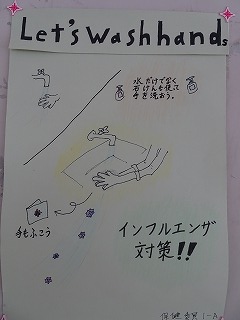 Let's wash hands
水だけでなく
石けんを使って
手を洗おう。
手もふこう
インフルエンザ
対策!!
保健委員 1-A